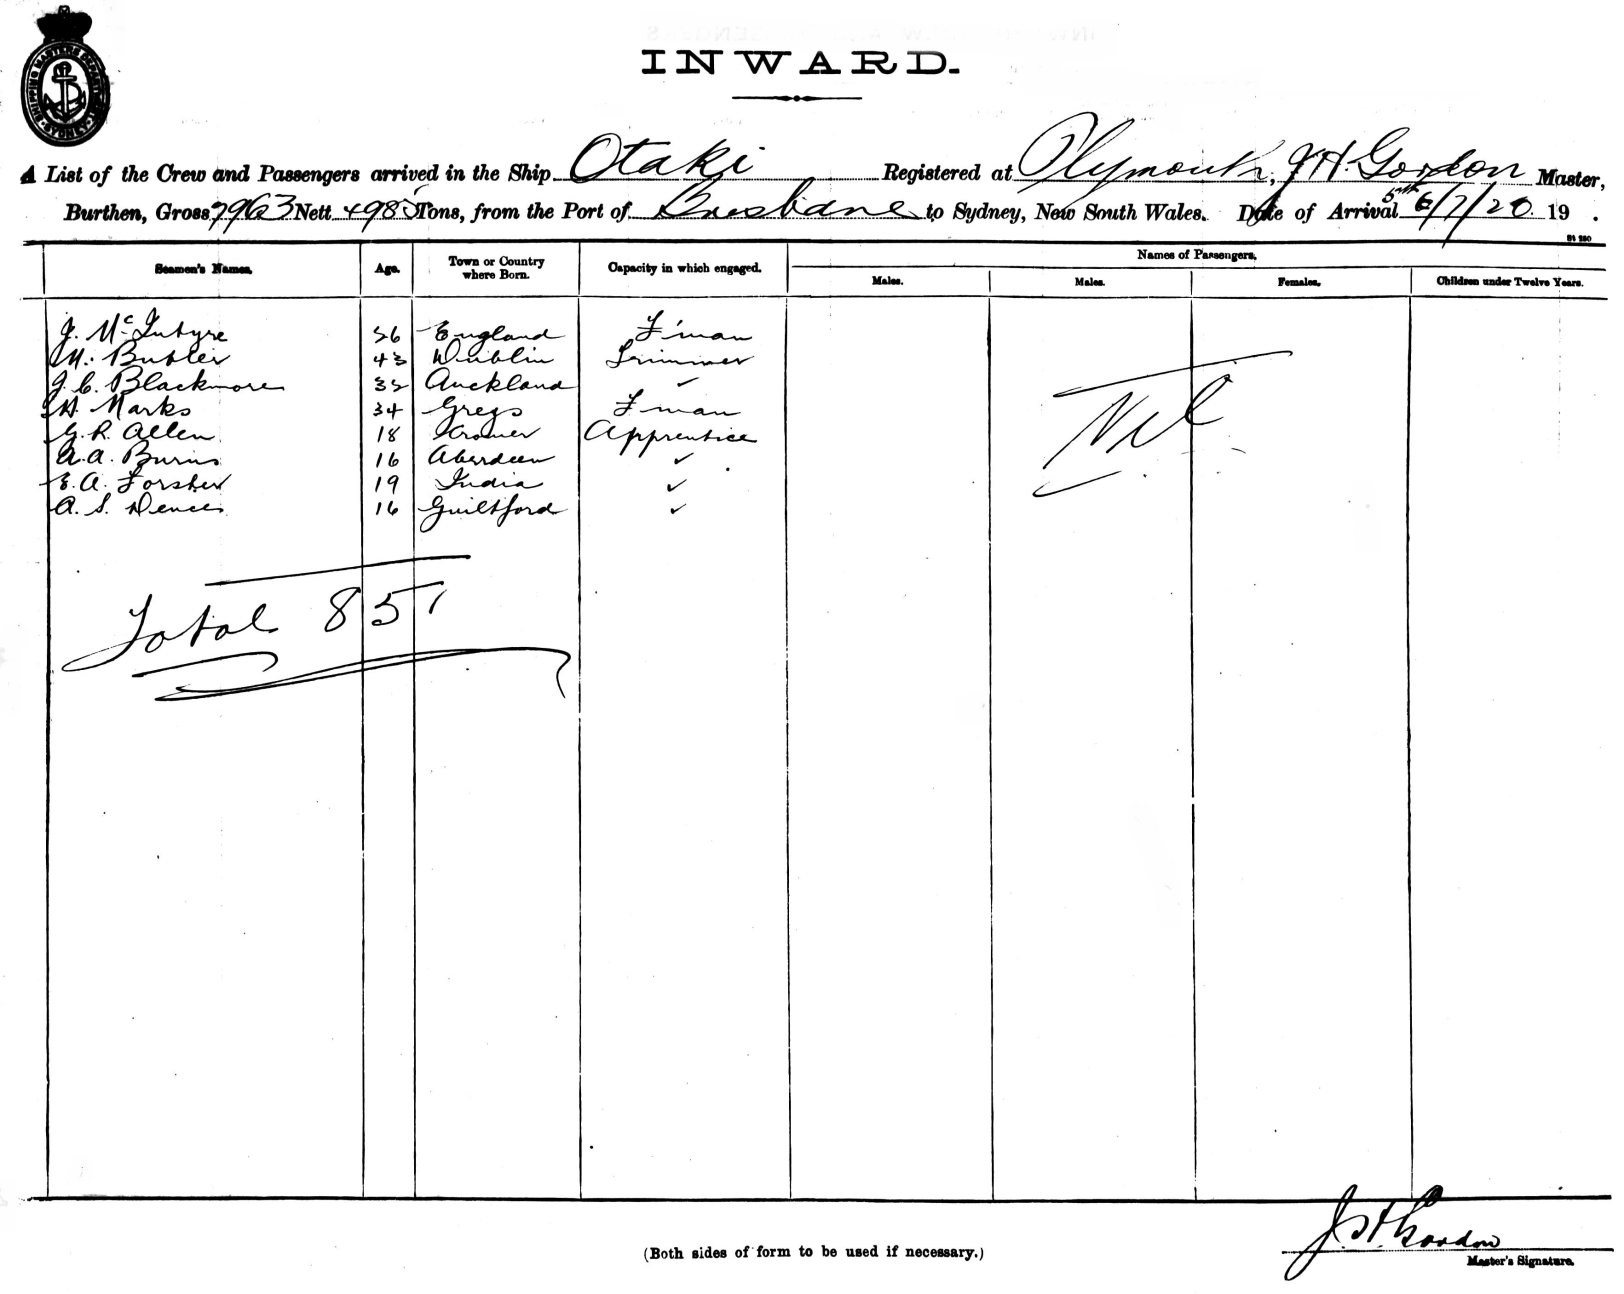 SHIPPING MASTERS DEPARTMENT
SYDNEY
INWARD.
A List of the Crew and Passengers arrived in the Ship Otaki Registered at Plymouth, J. H. Gordon Master,
Burthen, Gross 7963 Nett 4985 Tons, from the Port of Brisbane to Sydney, New South Wales. Date of Arrival 5th 6/7/20 19 .
Seamen's Names. Age. Town or Country where Born. Capacity in which engaged. Names of Passengers.
Males. Males. Females. Children under Twelve Years.
J. McIntyre 36 England F'man
M. Butler 43 Dublin Trimmer
J. C. Blackmore 35 Auckland ✓
H. Marks 34 Grays F'man
G. R. Allen 18 Cromer Apprentice
A. A. Burns 16 Aberdeen ✓
E. A. Forster 19 India ✓
A. S. 16 Guiltford ✓
Nil
Total 85
J. H. Gordon
(Both sides of form to be used if necessary.)
Master's Signature.